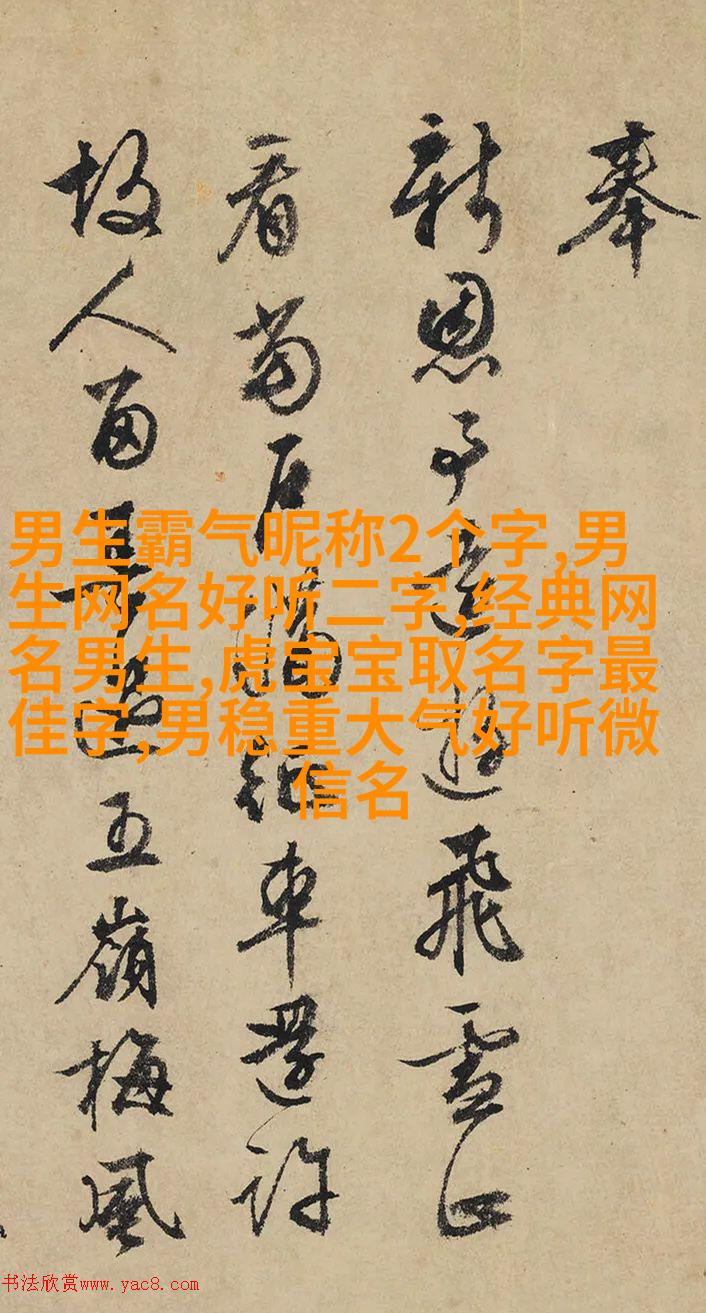 奉
新恩予遠遊飛雪正
看車還許
故人留五嶺梅風
男生霸气昵称2个字,男
生网名好听二字,经典网
名男生,虎宝宝取名字最
佳字,男稳重大气好听微
信名
书法欣赏www.yac8.com